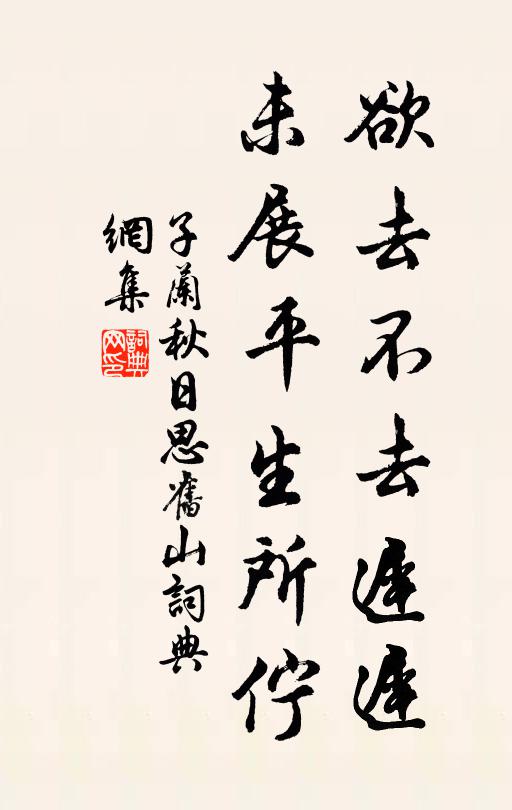 欲去不去遲遲
未展平生所佇
子蘭秋日思舊山詞典
網集
詞典網印